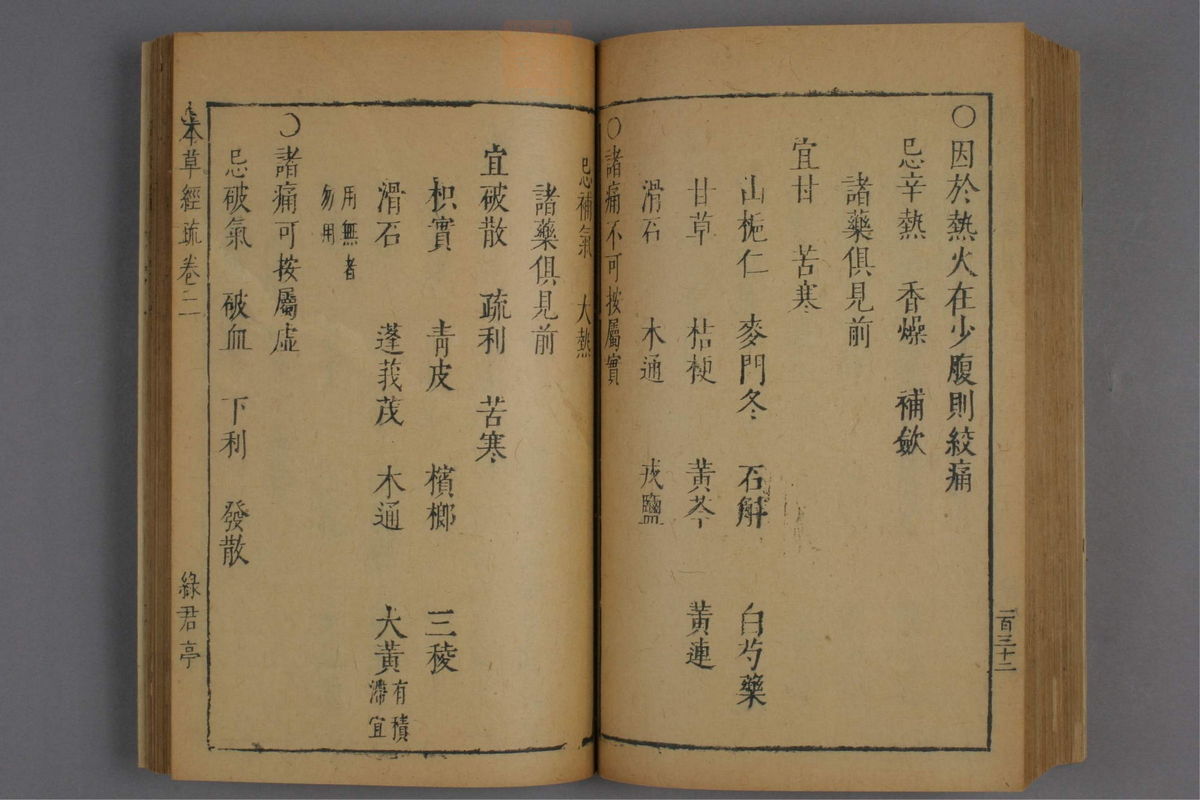 〇因於熱火在少腹則絞痛
忌辛熱　香燥　補斂
諸藥俱見前
宜甘　苦寒
山梔仁　麥門冬　石斛　白芍藥
甘草　桔梗　黃芩　黃連
滑石　木通　戎鹽
〇諸痛不可按屬實
忌補氣　大熱
諸藥俱見前
宜破散　疏利　苦寒
枳實　青皮　檳榔　三稜
滑石　蓬莪茂　木通　大黃有積滯宜
用無者勿用
〇諸痛可按屬虛
忌破氣　破血　下利　發散
本草經疏卷二
綠君亭
二百三十二